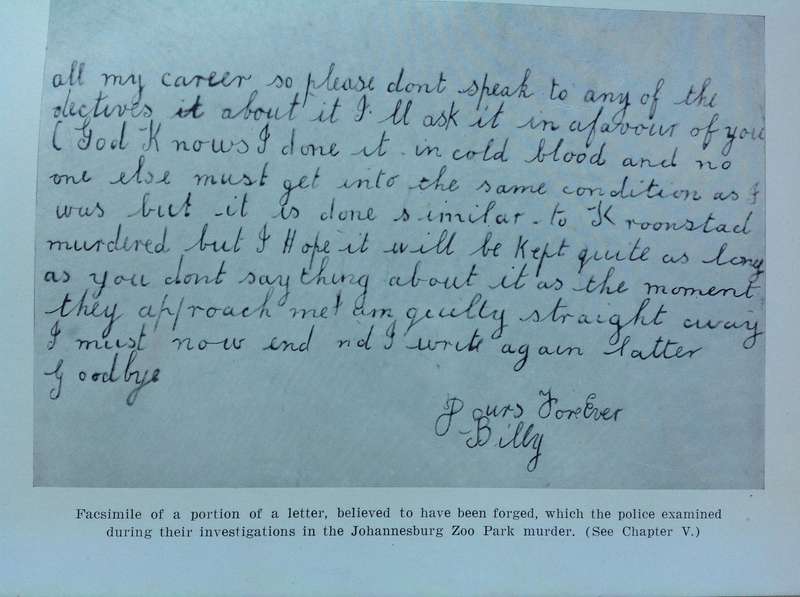 all my career so please dont speak to any of the
dectives it about it I'll ask it in afavour of you
(God Knows I done it in cold blood and no
one else must get into the same condition as I
was but it is done similar to Kroonstad
murdered but I Hope it will be kept quite as long
as you dont saything about it as the moment
they approach me I am guilly straight away
I must now end nd I write again latter
Goodbye
Yours ForeEver
Billy
Facsimile of a portion of a letter, believed to have been forged, which the police examined
during their investigations in the Johannesburg Zoo Park murder. (See Chapter V.)